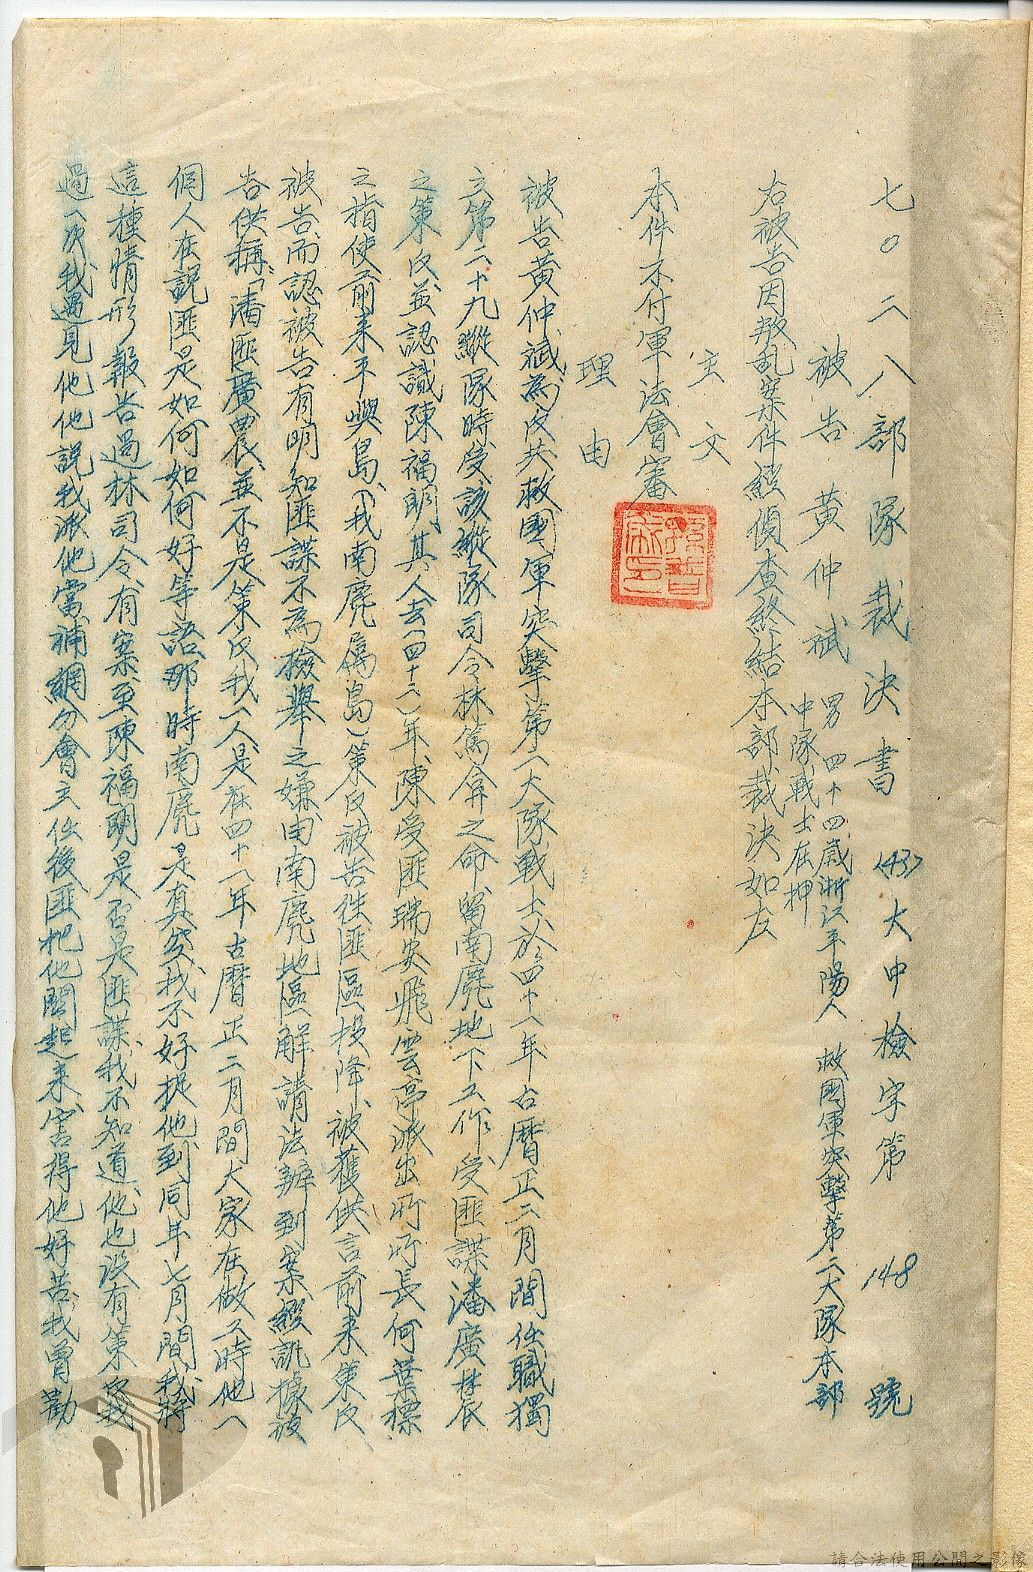 七〇二八部隊裁決書 (43)大中檢字第 148 號
被告 黃仲斌 男 四十四歲浙江平陽人 救國軍突擊第二大隊本部
中隊戰士在押
右被告因叛乱案件經偵查終結本部裁決如左
主文
本件不付軍法會審
理由
被告黃仲斌為反共救國軍突擊第一大隊戰士於四十一年古曆正二月間任職獨
立第二十九縱隊時受該縱隊司令林篤弇之命留南麂地下工作受匪諜潘廣農
之策反並認識陳福明其人去(四十二)年陳受匪瑞安飛雲亭派出所所長何葉標
之指使前来平嶼島(我南麂屬島)策反被告往匪區投降被獲供言前来策反
被告而認被告有明知匪諜不為檢舉之嫌由南麂地區解請法辦到案經訊據被
告供稱「潘匪廣農並不是策反我一人是在四十一年古曆正二月間大家在做工時他一
個人在説匪是如何如何好等語那時南麂是真空我不好捉他到同年七月間我將
這種情形報告過林司令有案至陳福明是否是匪諜我不知道他也没有策反我
過一次我遇見他他説我派他當補網分會主任後匪把他關起来害得他好苦我曾勸
請合法使用公開之影像